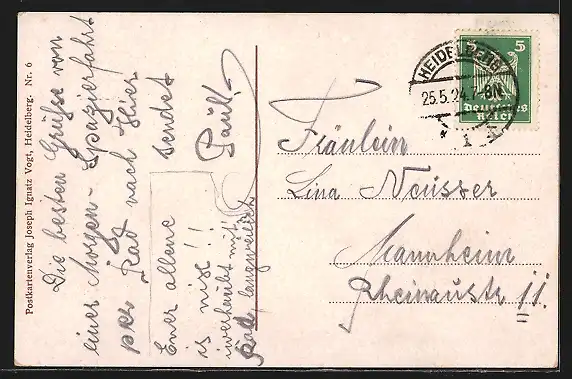 Die besten Grüsse von
einer Morgen-Spazierfahrt
per Rad nach hier
sendet
Paull.
Euer allene
is nix!!
langweilich
Postkartenverlag Joseph Ignatz Vogt, Heidelberg. Nr. 6
HEIDELBERG
25.5.24.7-8N.
5
Deutsches
Reich
Fräulein
Lina Neusser
Mannheim
Rheinaustr 11.